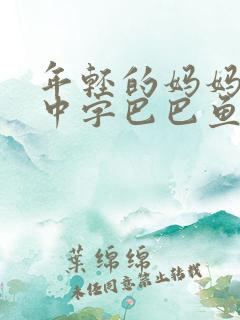 年轻的妈妈
中字巴巴鱼
葉绵绵
未经同意禁止转载